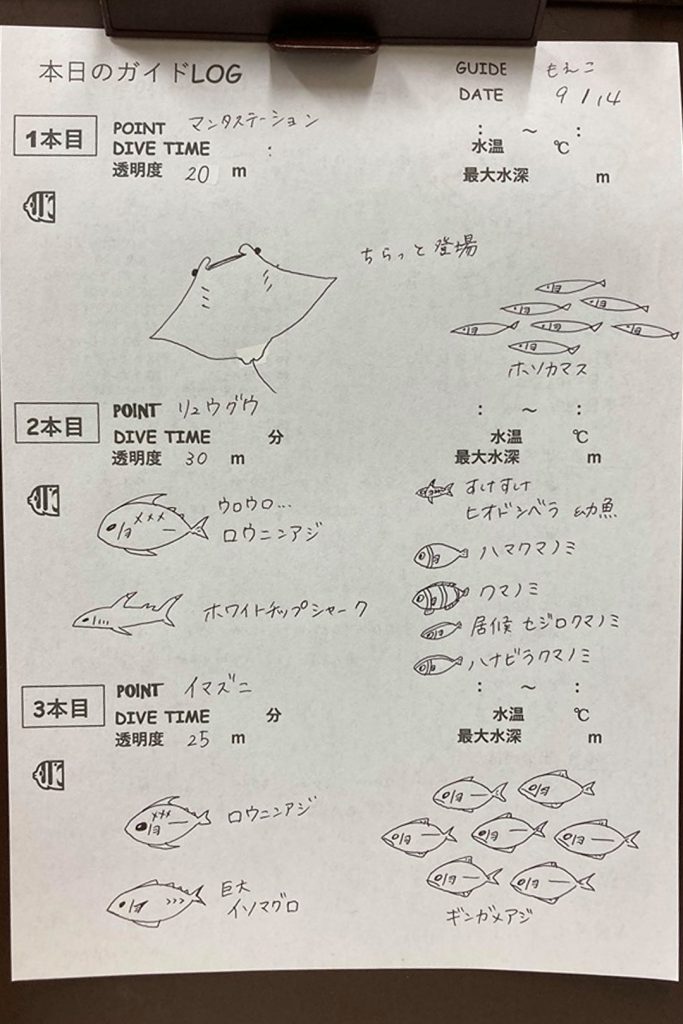 本日のガイドLOG
GUIDE もえこ
DATE 9/14
1本目
POINT マンタステーション
: ～ :
DIVE TIME :
水温 ℃
透明度 20 m
最大水深 m
ちらっと登場
ホソカマス
2本目
POINT リュウグウ
: ～ :
DIVE TIME 分
水温 ℃
透明度 30 m
最大水深 m
ウロウロ...
ロウニンアジ
ホワイトチップシャーク
すけすけ
ヒオドシベラ 幼魚
ハマクマノミ
クマノミ
居候 セジロクマノミ
ハナビラクマノミ
3本目
POINT イマズニ
: ～ :
DIVE TIME 分
水温 ℃
透明度 25 m
最大水深 m
ロウニンアジ
巨大
イソマグロ
ギンガメアジ